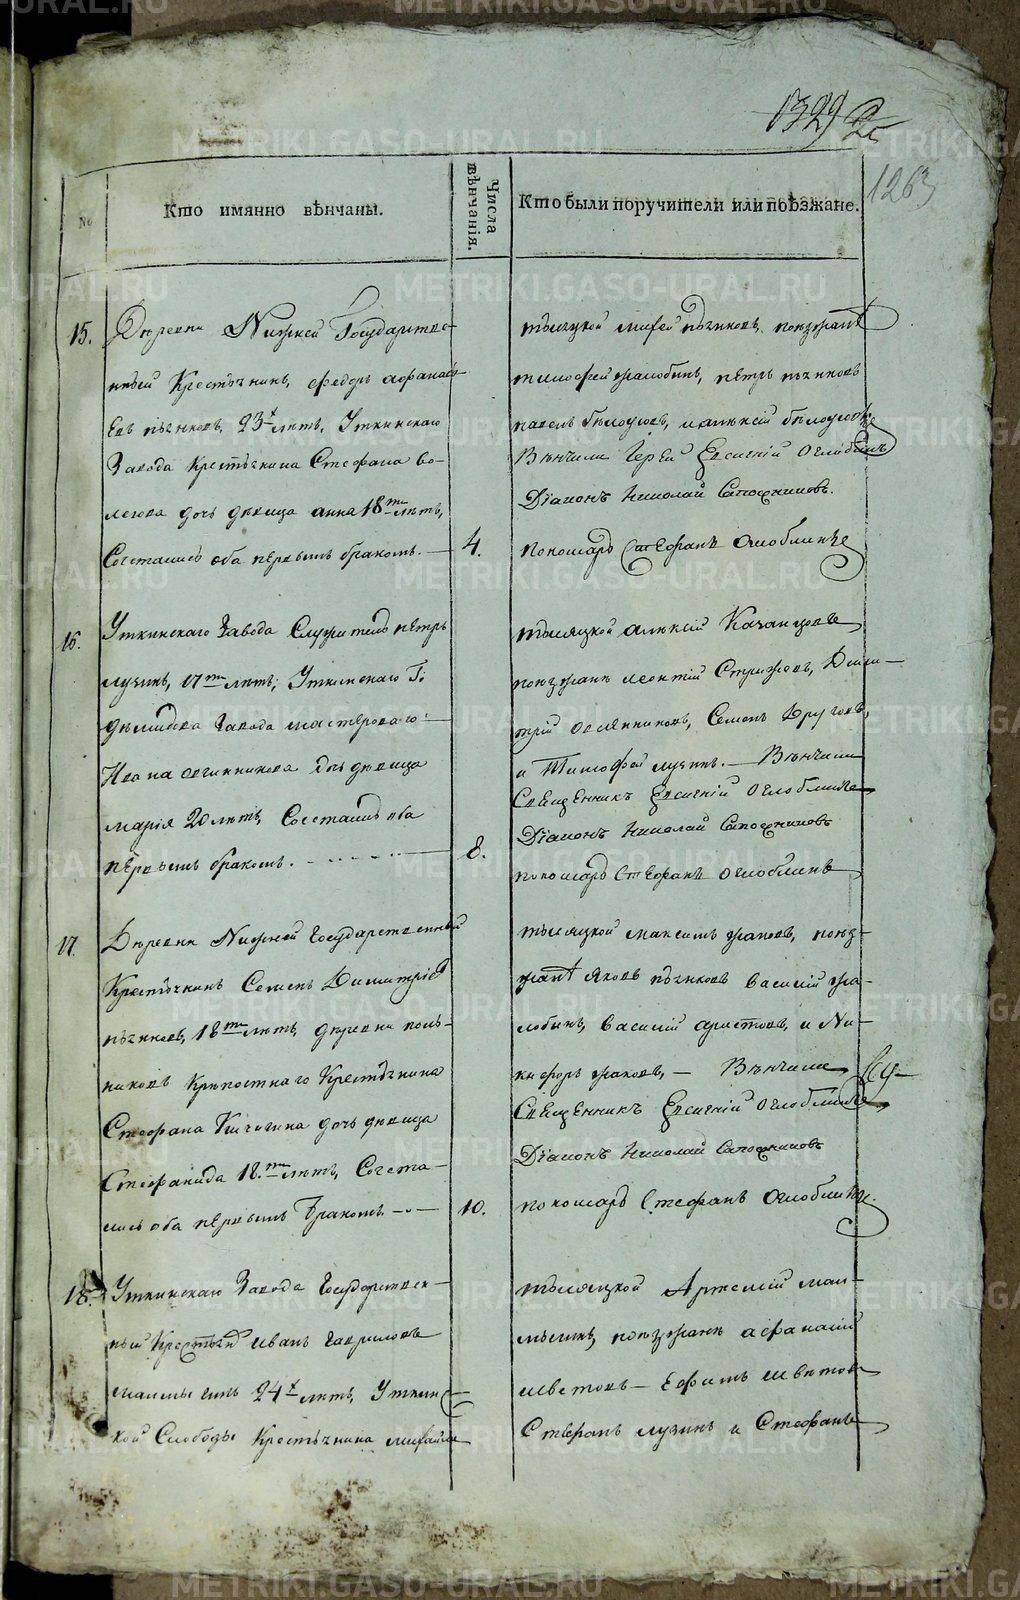 1329
1263
№
Кто имянно вѣнчаны.
Числа вѣнчанія.
Кто были поручители или поѣзжане.
15.
Деревни Нижней Государстве-
нный Крестьянинъ, федоръ афанась
евъ пьянковъ, 23х лѣтъ, Уткинскаго
Завода Крестьянина Стефана во-
дочь девица анна 18ти лѣтъ,
Сочетались оба первымъ бракомъ.
4.
тысяцкой пьянковъ, поезжанѣ
тимофей жалобинъ, петръ пьянковъ
павелъ бѣлоусовъ, алексѣй бѣлоусовъ
Вѣнчали Іерей Евсигній Оглоблинъ
Діаконъ Николай Сапожниковъ.
пономарь Стефанъ Оглоблинъ
16.
Уткинскаго Завода Служитель петръ
лузинъ, 17ти лѣтъ, Уткинскаго Г.
демидова Завода мастероваго
Ивана овчинникова дочь девица
марія 20 лѣтъ, Сочетались оба
первымъ бракомъ.
8.
тысяцкой алексѣй Казанцовъ
поезжане леонтій Стрижовъ, Дими-
трій овсянниковъ, Семенъ Друговъ,
и Тимофей лузинъ. Вѣнчали
Священникъ Евсигній Оглоблинъ
Діаконъ Николай Сапожниковъ
пономарь Стефанъ Оглоблинъ
17.
Деревни Нижней Государственный
Крестьянинъ Семенъ Димитріевъ
пьянковъ, 18ти лѣтъ, деревни
Крѣпостнаго Крестьянина
Стефана Кичигина дочь девица
Стефанида 18.ти лѣтъ, Сочета-
лись оба первымъ бракомъ
10.
тысяцкой максимъ поез-
жанѣ яковъ пьянковъ василій жа-
лобинъ, василій аристовъ, и Ни-
кифоръ Вѣнчали
Священникъ Евсигній Оглоблинъ
Діаконъ Николай Сапожниковъ
пономарь Стефанъ Оглоблинъ.
18.
Уткинскаго Завода Государствен-
ный иванъ гавриловъ
мамы гинъ 24х лѣтъ, Уткин-
кой Слободы Крестьянина михайла
тысяцкой Артемій мам-
поезжане афанасій
шветовъ Ефимъ
Стефанъ лузинъ и Стефанъ